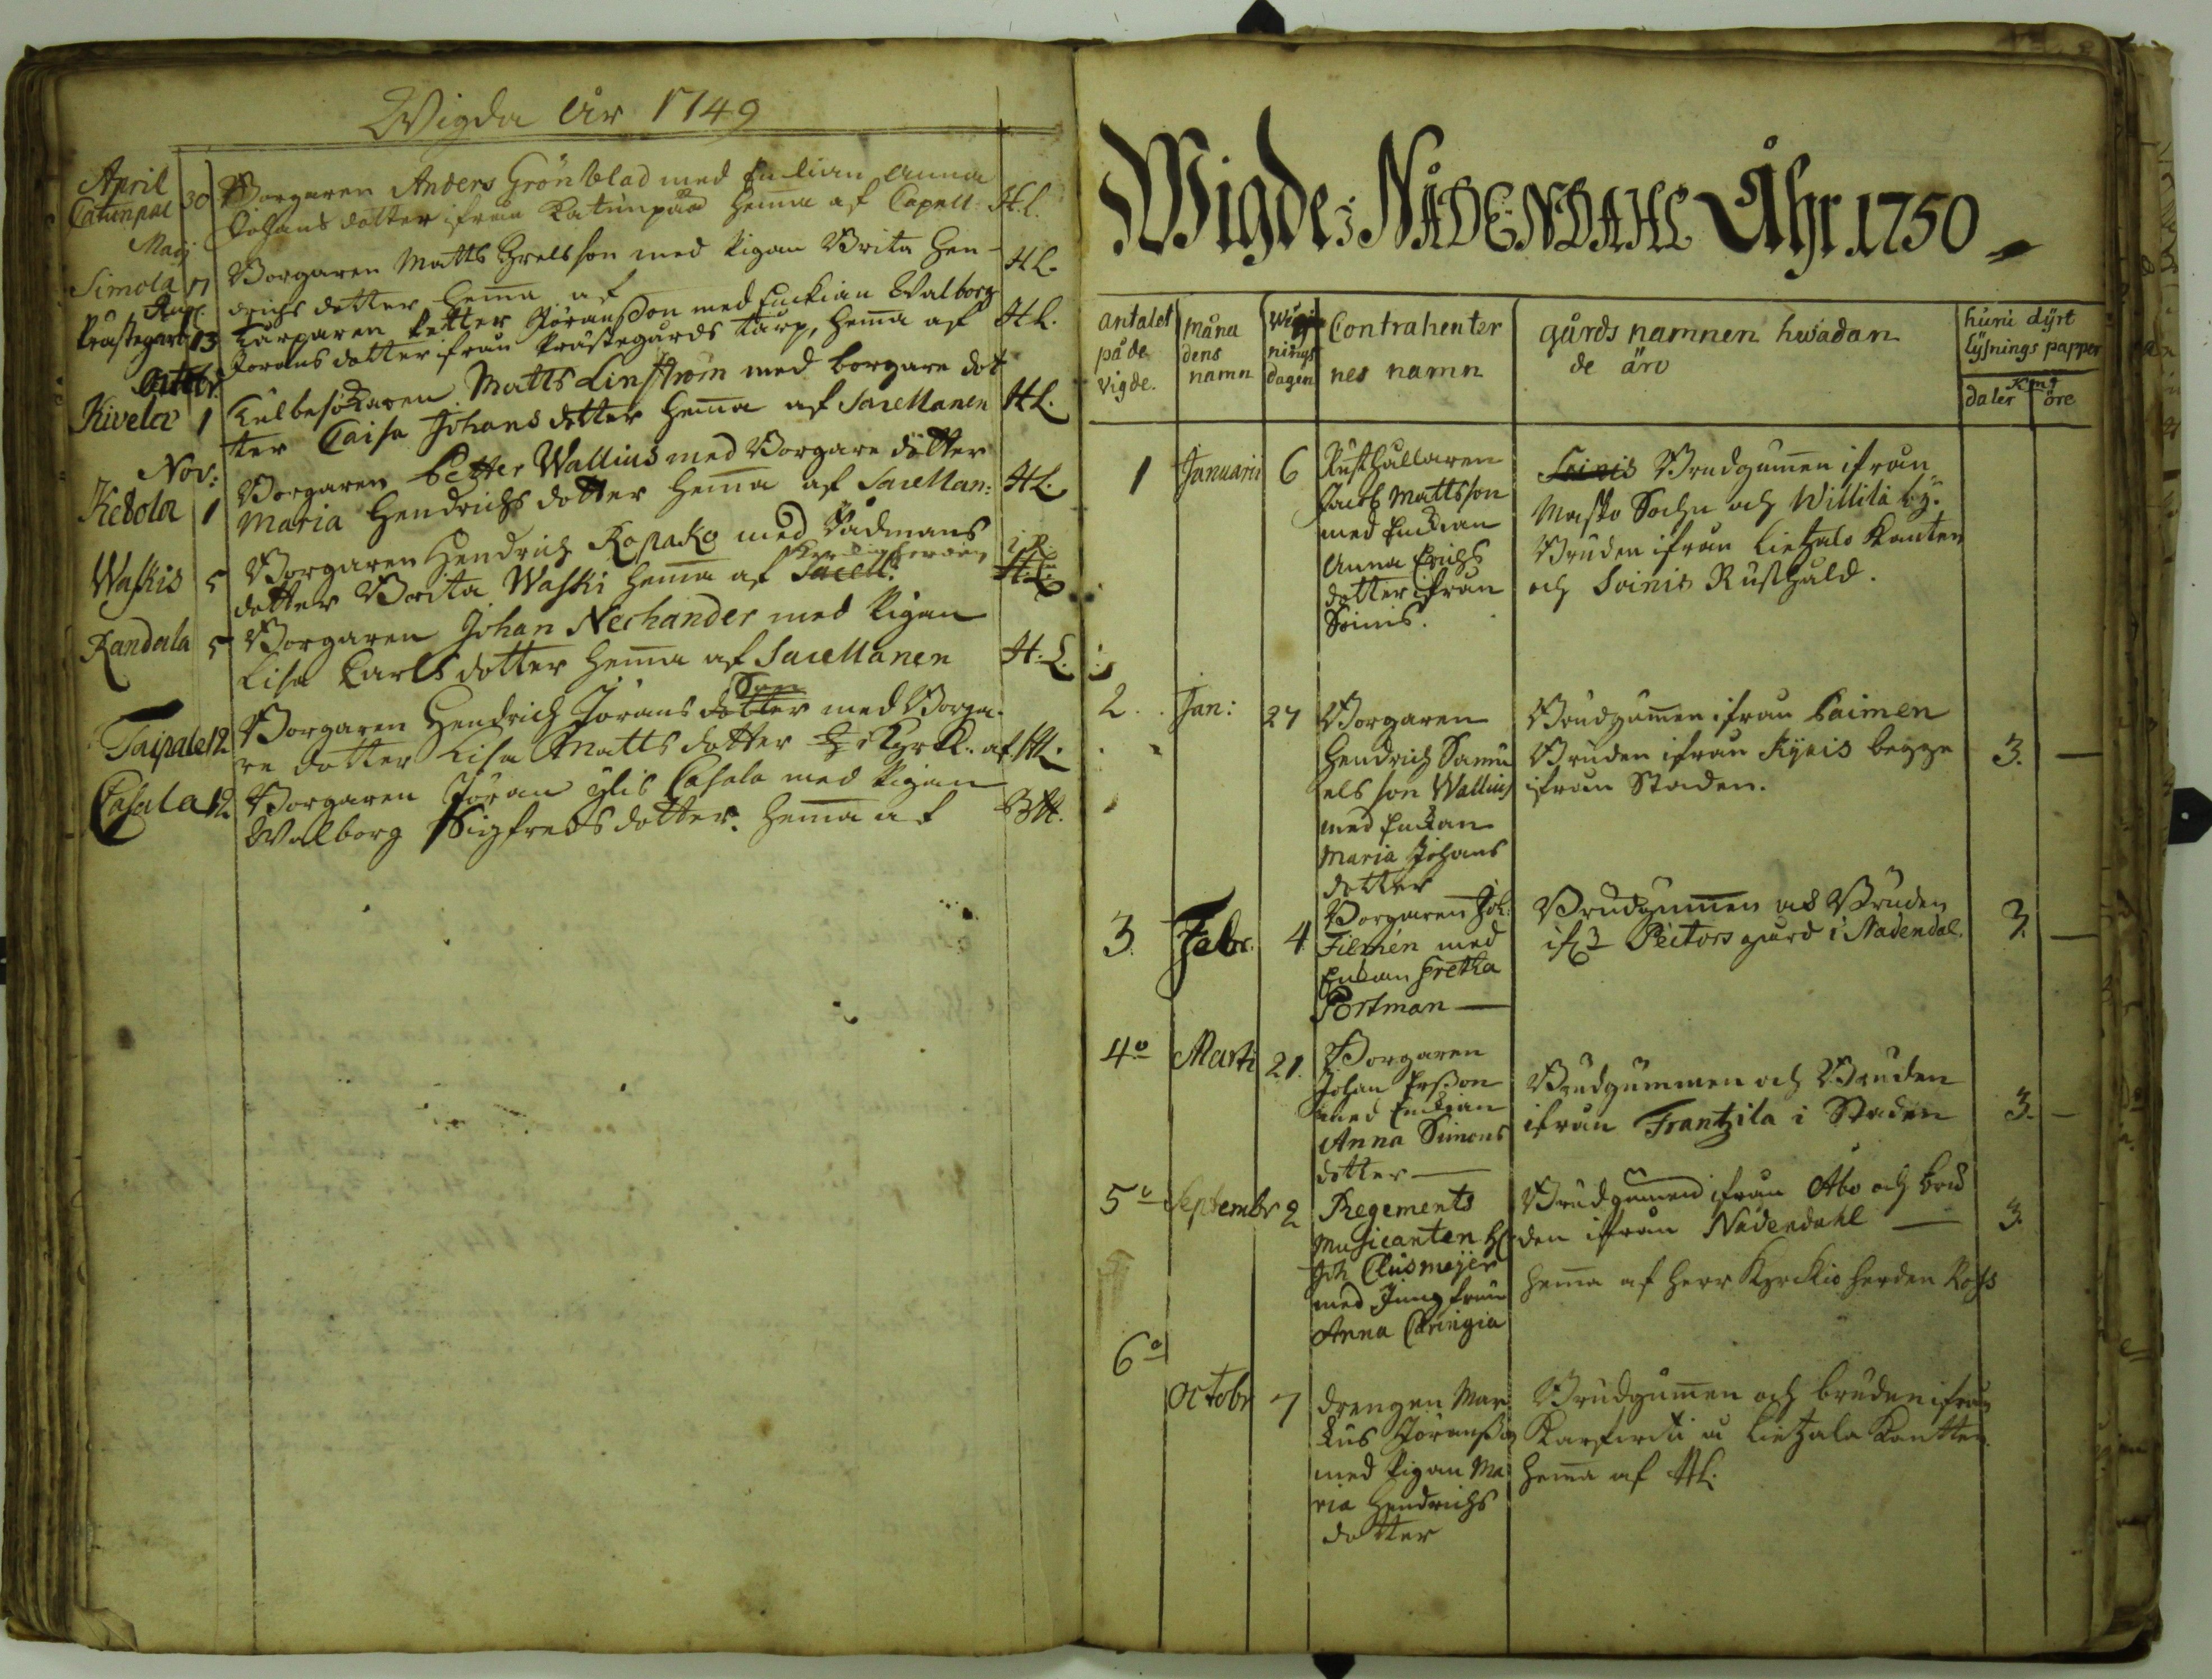 Wigda År 1749
April
Catinpää 30 Borgaren Anders Grönblad med Enckian Anna
Johans dotter ifrån Katinpää hema af Capell. H.L.
Maij
Simola 17 Borgaren Matts Grelsson med Pigan Brita Hen-
drichs dotter hema af H.L.
Aug.
Prästegårds 13 Torparen Petter Jöransson med Enckian Walborg
Jörans dotter ifrån Prästegårds torp, hema af H.L.
Octobr.
Kivela 1 Matts Linström med borgare dot
ter Caisa Johans dotter hema af Sacellanen H.L.
Nov:
Kedola 1 Borgaren Petter Wallius med Borgare dotter
Maria Hendrichs dotter hema af Sacellan: H.L.
Waskis 5 Borgaren Hendrich Kopako med Rådmans
dotter Brita Waski hema af Sacell. Kyrckioherden I.R. H.L.
Kandala 5 Borgaren Johan Nechander med Pigan
Lisa Carls dotter hema af Sacellanen H.L.
Taipale 12 Borgaren Hendrich Jörans dotter Son med Borga-
re dotter Lisa Matts dotter i Kyrk. af H.L.
Casala 12. Borgaren Jöran Casala med Pigan
Walborg Sigfreds dotter. hema af H.
Wigde i NÅDENDAHL Åhr 1750
antalet på de vigde. | månadens namn | Wigningsdagen | Contrahenternes namn | gårds namnen hwadan de äro | huru dyrt Lysnings papper Kmt daler öre
1 Januarii 6 Rusthållaren
Jacob Mattsson
med Enckian
Anna Erichs
dotter ifrån
Soinis.
Soinis Brudgumen ifrån
Masko Sochn och Willila by.
Bruden ifrån Lietzala Kanten
och Soinis Rusthåld.
2. Jan: 27 Borgaren
Hendrich Samu
els son Wallius
med Enckan
Maria Johans
dotter
Brudgumen ifrån Paimen
Bruden ifrån Kynis begge
ifrån Staden. 3. —
3. Febr. 4 Borgaren Joh:
Filmén med
Enkan Gretha
Portman —
Brudgumen och Bruden
ifrån Peitors gård i Nådendal. 3. —
4o Marti 21. Borgaren
Johan Ersson
med Enckian
Anna Simons
dotter —
Brudgummen och Bruden
ifrån Frantzila i Staden 3. —
5o Septembr 2 Regements
Musicanten Hr
Joh Clusmeijer
med Jungfrun
Anna Caringia
Brudgumen ifrån Åbo och bru
den ifrån Nådendahl — 3.
hema af Herr Kyrckio herden Ross
6o
Octobr 7 drengen Mar
kus Jöransson
med Pigan Ma
ria Hendrichs
dotter
Brudgumen och bruden ifrån
å Lietzala Kantten.
hema af H.L.